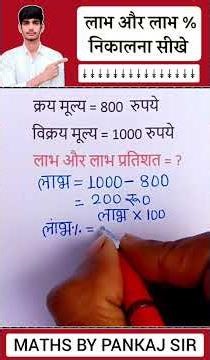 लाभ और लाभ %
निकालना सीखे
↓↓↓↓↓↓↓↓↓↓↓↓↓↓↓
क्रय मूल्य = 800 रुपये
विक्रय मूल्य = 1000 रुपये
लाभ और लाभ प्रतिशत = ?
लाभ = 1000 - 800
= 200 रू0
लाभ × 100
लाभ% =
MATHS BY PANKAJ SIR